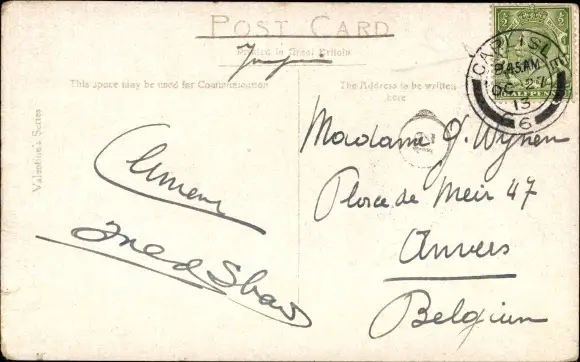 POST CARD
Printed in Great Britain
This space may be used for Communication
The Address to be written
here
Valentine's Series
CARLISLE
9.45AM
OC 27
13
66
HALFPENNY
Madame J. Wynen
Place de Meir 47
Anvers
Belgium
Fred Shaw